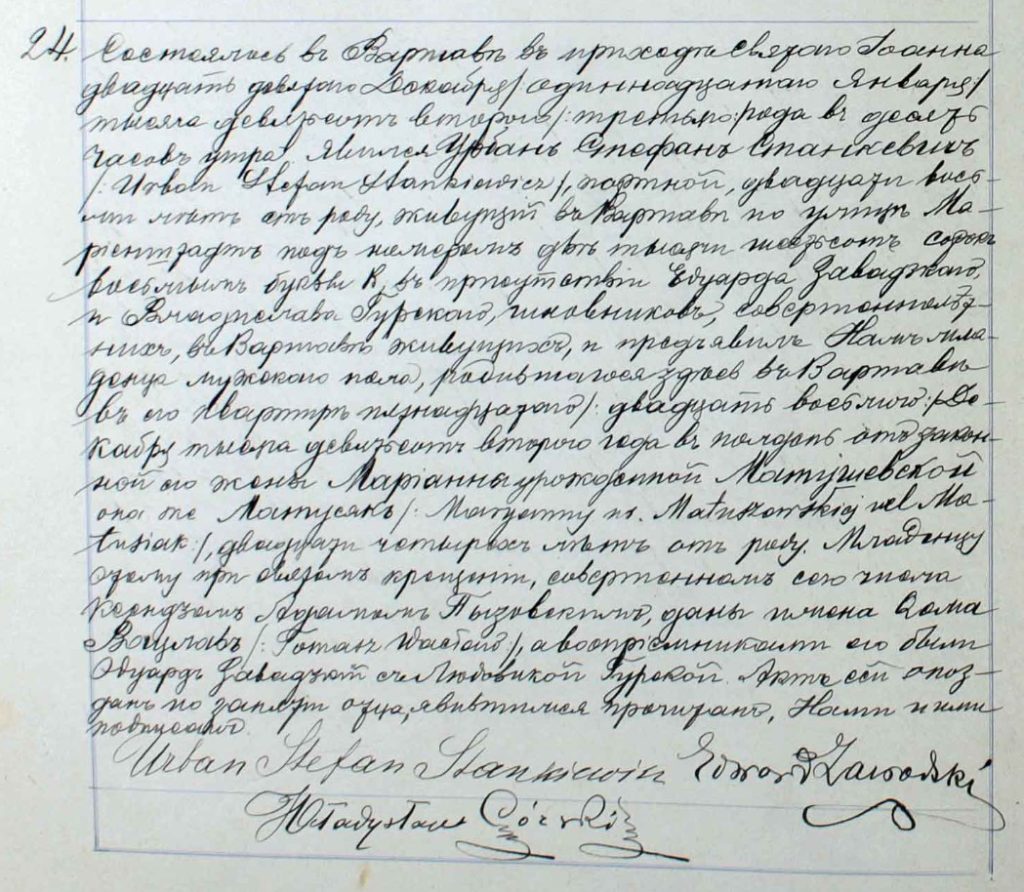 24. Состоялось въ Варшавѣ въ приходѣ Святаго Іоанна
двадцать девятаго Декабря /: одиннадцатаго Января :/
тысяча девятьсотъ второго /: третьяго :/ года въ десять
часовъ утра. Явился Урбанъ Стефанъ Станкевичъ
/: Urban Stefan Stankiewicz :/, портной, двадцати вось-
ми лѣтъ отъ роду, живущій въ Варшавѣ по улицѣ Ма-
ріенштадтъ подъ номеромъ двѣ тысячи шестьсотъ сорокъ
восьмымъ буквы В, въ присутствіи Едуарда Завадзкаго,
и Владислава Гурскаго, чиновниковъ, совершеннолѣт-
нихъ, въ Варшавѣ живущихъ, и предъявилъ Намъ мла-
денца мужскаго пола, родившагося здѣсь въ Варшавѣ
въ его квартирѣ пятнадцатаго /: двадцать восьмого :/ Де-
кабря тысяча девятьсотъ второго года въ полдень отъ закон-
ной его жены Маріанны урожденной Матушевской
она же Матусякъ /: Maryanny ur. Matuszewskiej vel Ma-
tusiak :/, двадцати четырехъ лѣтъ отъ роду. Младенцу
этому при святомъ крещеніи, совершенномъ сего числа
Ксендзомъ Адамомъ Пызовскимъ, даны имена Ѳома
Вацлавъ /: Tomasz Wacław :/, а воспріемниками его были
Эдуардъ Завадзкій съ Людовикой Гурской. Актъ сей опоз-
данъ по занятію отца, явившимся прочитанъ, Нами и ими
подписанъ.
Urban Stefan Stankiewicz Edward Zawadzki
Władysław Górski